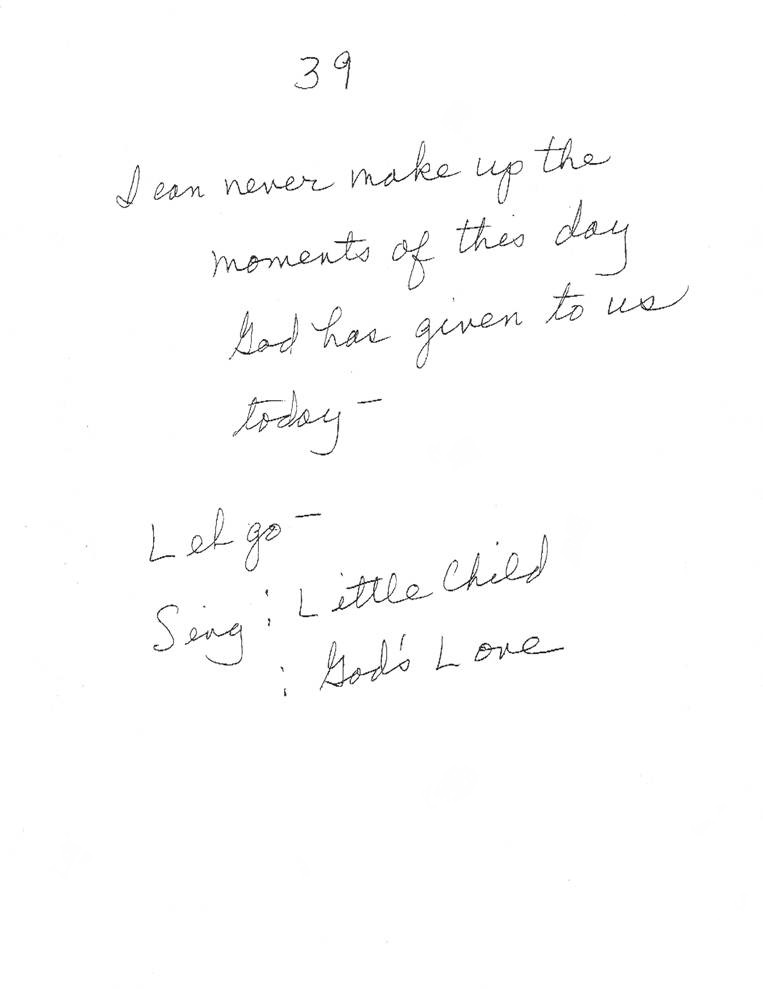 39
I can never make up the
moments of this day
God has given to us
today -
Let go -
Sing : Little Child
: God's Love